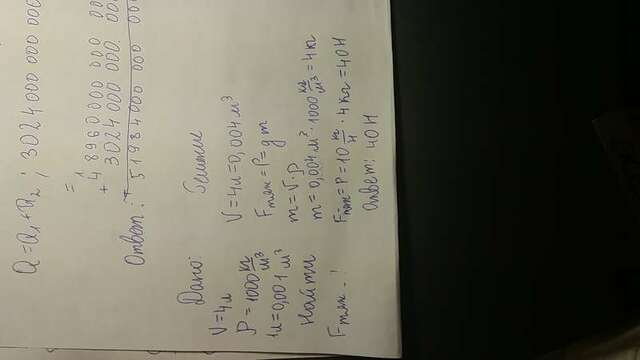 Q=Q₁+Q₂; 3024000 000 000
=
+ 4 8960000 000 00
3024 000 000 00
5 1984 000 000 00
Ответ:
Дано:
V=4л
ρ=1000 кг/м³
1л=0,001 м³
Найти
Fтяж - ?
Решение
V=4л=0,004 м³
Fтяж=P=gm
m=V·ρ
m=0,004 м³·1000 кг/м³=4кг
Fтяж=P=10 н/кг·4кг=40Н
Ответ: 40Н